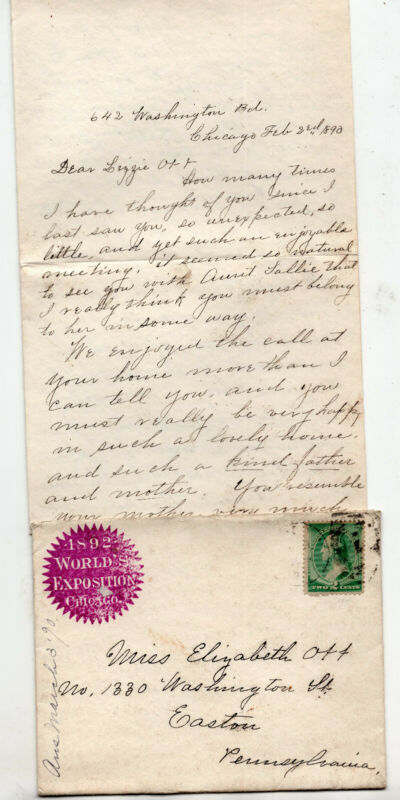 642 Washington Bd.
Chicago Feb 23rd, 1890
Dear Lizzie Ott
How many times
I have thought of you since I
last saw you, so unexpected, so
little, and yet such an enjoyable
meeting. it seemed so natural
to see you with Aunt Sallie that
I really think you must belong
to her in some way.
We enjoyed the call at
your home more than I
can tell you, and you
must really be very happy
in such a lovely home.
and such a kind father
and mother. You resemble
your mother very much
1892
WORLD'S
EXPOSITION
CHICAGO.
TWO CENTS
Miss Elizabeth Ott
No. 1330 Washington St.
Easton
Pennsylvania.
Ans March 3 '90